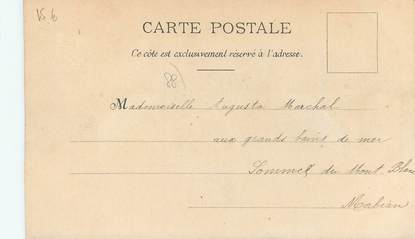 15.6
CARTE POSTALE
Ce côté est exclusivement réservé à l'adresse.
88)
Mademoiselle Augusta Marchal
aux grands bains de mer
Sommet du Mont Blanc